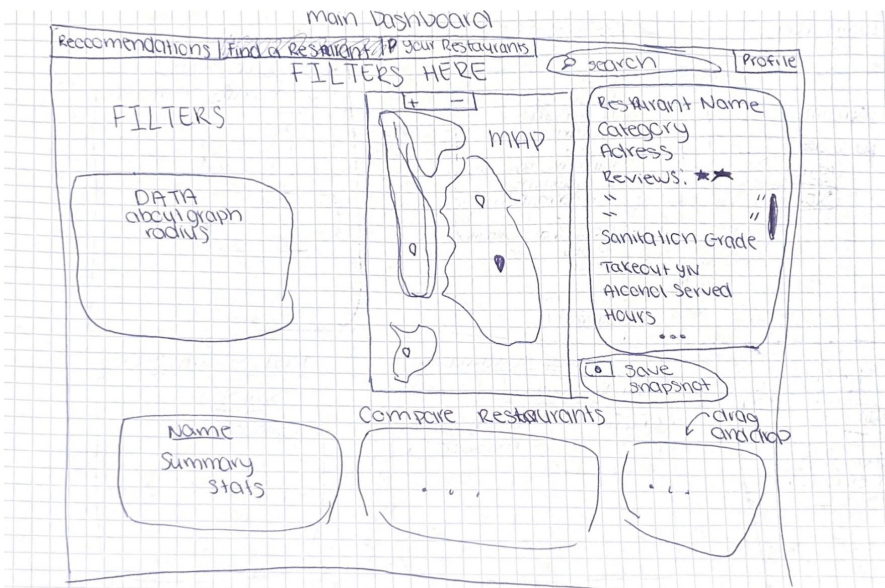 Main Dashboard
Reccomendations | Find a Restaurant | Your Restaurants
search
Profile
FILTERS HERE
FILTERS
+ -
MAP
Restaurant Name
Category
Adress
Reviews: ★★
" "
" "
Sanitation Grade
Takeout Y/N
Alcohol Served
Hours
...
DATA
radius
save
snapshot
Compare Restaurants
drag
and drop
Name
Summary
Stats
...
...